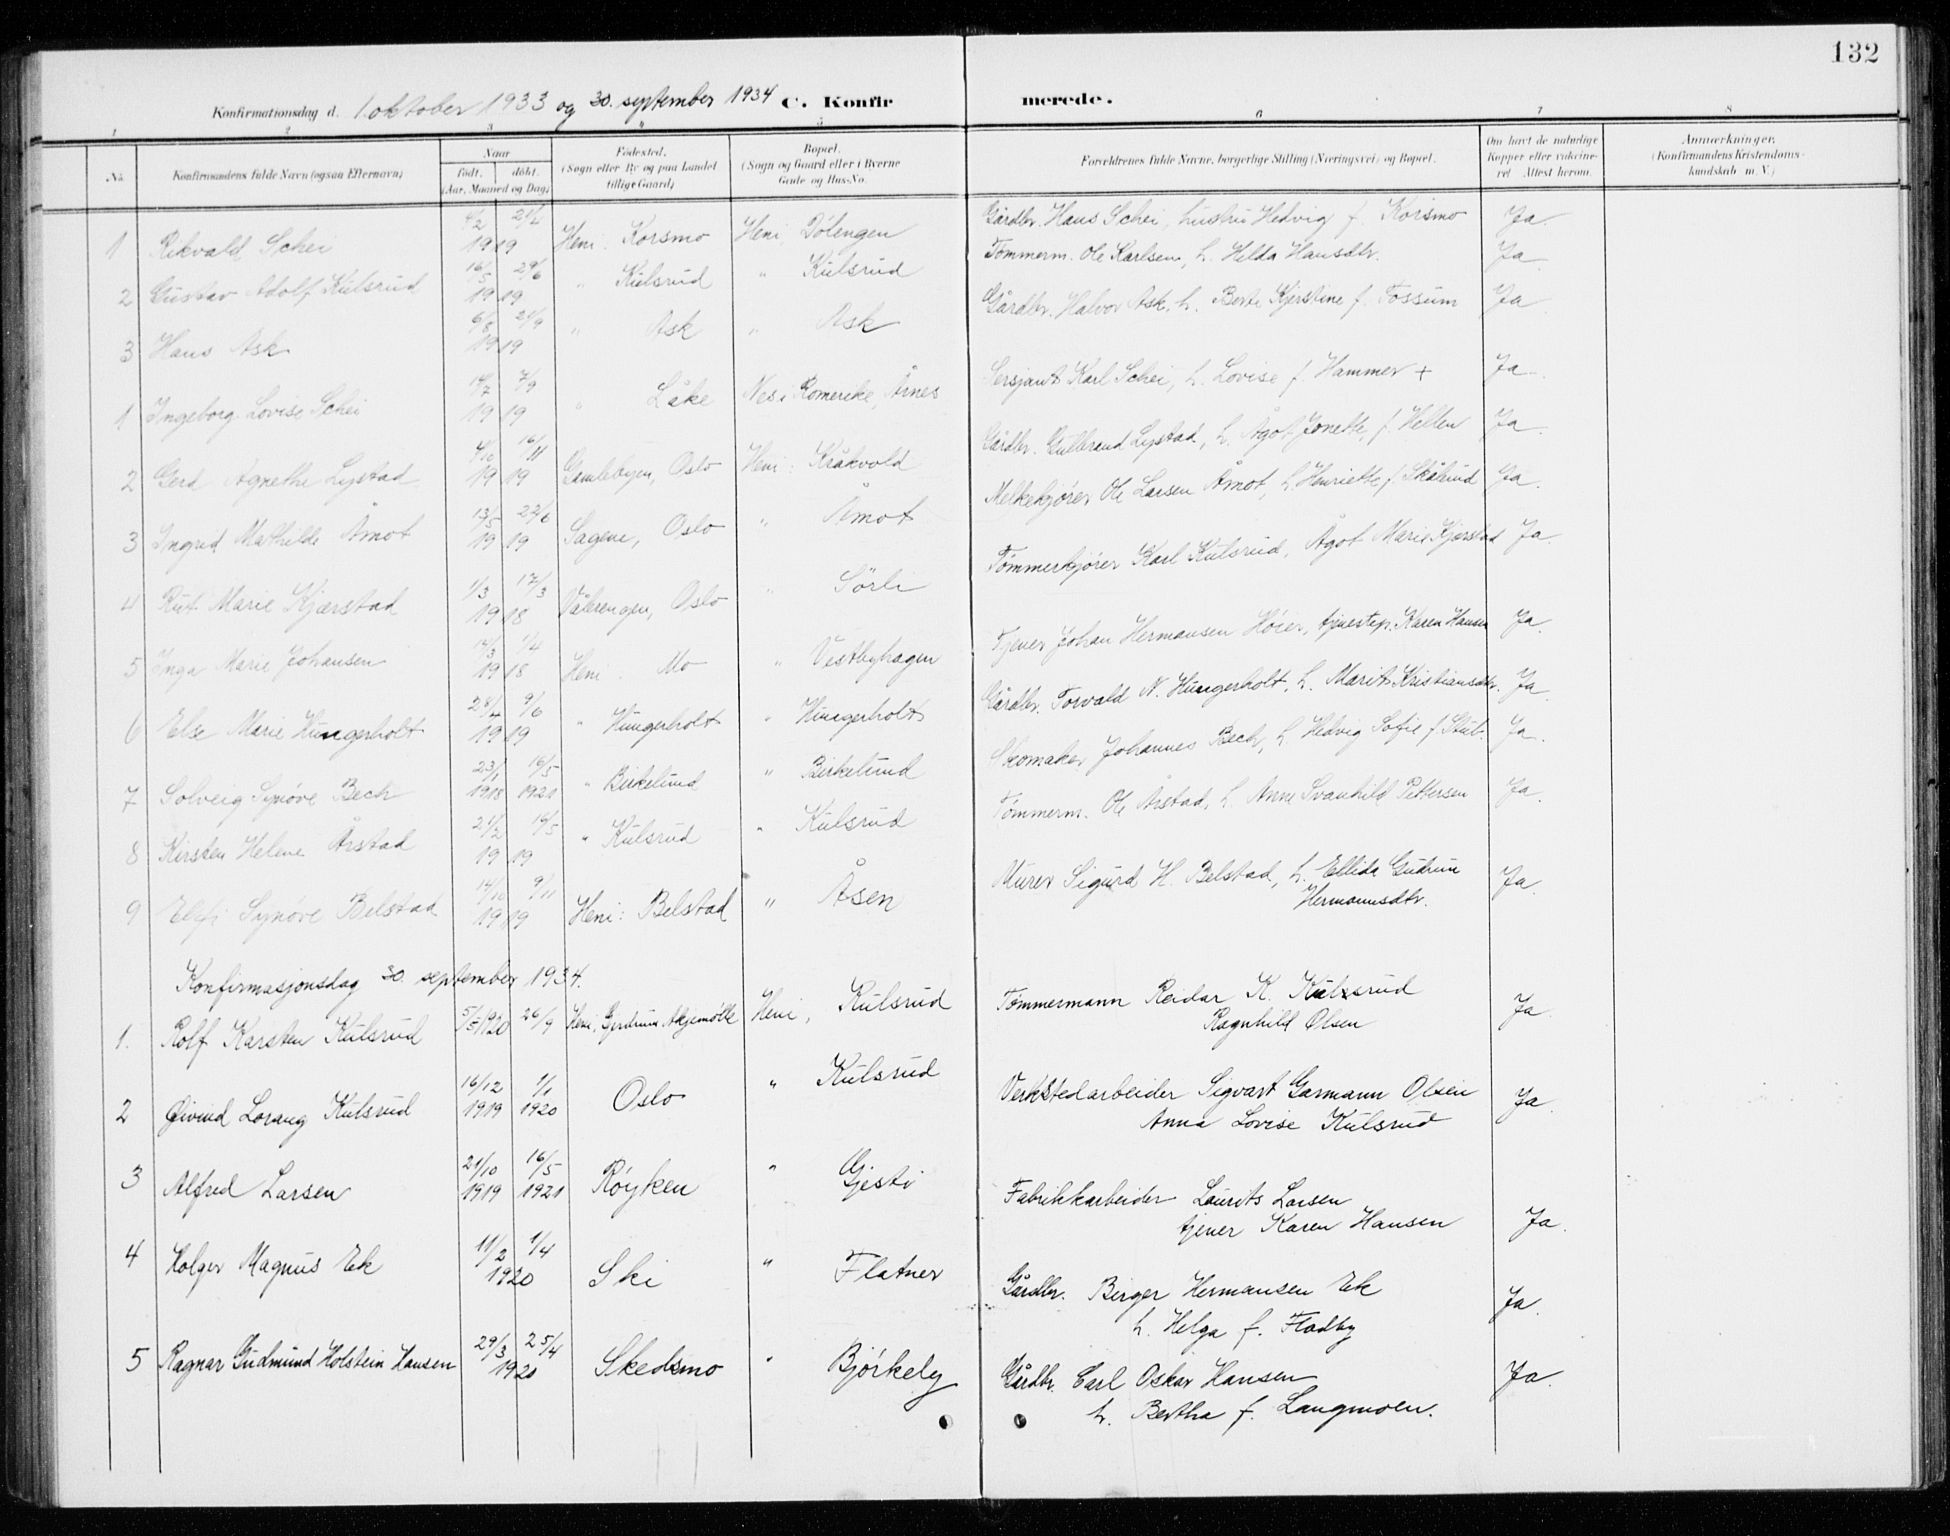 132
Konfirmationsdag d. 1. oktober 1933 og 30. september 1934 C. Konfirmerede.
1 2 3 4 5 6 7 8
No. Konfirmandens fulde Navn (ogsaa Efternavn) Naar født. døbt. (Aar, Maaned og Dag) Fødested. (Sogn eller By og paa Landet tillige Gaard) Bopæl. (Sogn og Gaard eller i Byerne Gade og Hus-No. Forældrenes fulde Navne, borgerlige Stilling (Næringsvei) og Bopæl. Om havt de naturlige Kopper eller vakcineret. Attest herom. Anmærkninger. (Konfirmandens Kristendomskundskab m. V.)
1 Rikvald Schei 19 19 Heni: Korsmo Heni, Dölengen Gårdbr. Hans Schei, hustru Hedvig f. Korsmo Ja.
2 Gustav Adolf Kulsrud 16/5 29/6 19 19 " Kulsrud " Kulsrud Tömmerm. Ole Karlsen, h. Hilda Hansdtr. Ja.
3 Hans Ask 6/8 21/9 19 19 " Ask " Ask Gårdbr. Halvor Ask, h. Berte Kjerstine f. Fossum Ja
1 Ingeborg Lovise Schei 14/7 7/9 19 19 " Låke Nes i Romerike, Årnes Sersjant Karl Schei, h. Lovise f. Hammer + Ja
2 Gerd Agnethe Lystad 4/10 16/11 19 19 Gamlebyen, Oslo Heni: Kråkvold Gårdbr. Gulbrand Lystad, h. Ågot Jonette, f. Hellen Ja.
3 Ingrid Mathilde Åmot 13/5 22/6 19 19 Sagene, Oslo " Åmot Melkekjörer Ole Larsen Åmot, h. Henriette f. Skålrud Ja.
4 Rut Marie Kjærstad 1/3 17/3 19 18 Vålerengen, Oslo " Sörli Tömmerkjörer Karl Kulsrud, Ågot Marie Kjærstad Ja.
5 Inga Marie Johansen 14/3 1/4 19 18 Heni: Mo " Vestbyhagen Tjener Johan Hermansen Höier, tjenestep. Karen Hansen Ja.
6 Else Marie Hungerholt 28/4 9/6 19 19 " Hungerholt " Hungerholt Gårdbr. Torvald N. Hungerholt, h. Marit Kristiansdtr. Ja
7 Solveig Synöve Bech 23/1 16/5 1918 1921 " Birkelund " Birkelund Skomaker Johannes Bech, h. Hedvig Sofie f. Stub. Ja.
8 Kirsten Helene Årstad 21/2 19 19 " Kulsrud " Kulsrud Tömmerm. Ole Årstad, h. Anne Svanhild Pettersen Ja.
9 Elfi Synöve Belstad 14/10 9/11 19 19 Heni: Belstad " Åsen Murer Sigurd H. Belstad, h. Ellida Gudrun Hermannsdtr. Ja.
Konfirmasjonsdag 30. september 1934.
1. Rolf Karsten Kulsrud 5/5 1920 26/9 Heni, Gjerdrum, Heni, Kulsrud Tömmermann Reidar K. Kulsrud
Ragnhild Olsen Ja.
2 Øivind Lorang Kulsrud 16/12 1919 1/1 1920 Oslo " Kulsrud Verkstedarbeider Sigvart Garmann Olsen
Anna Lovise Kulsrud Ja.
3 Alfred Larsen 21/10 1919 16/5 1921 Röyken " Gjesti Fabrikkarbeider Laurits Larsen
tjener Karen Hansen Ja.
4 Holger Magnus Ek 11/2 1/4 1920 Ski " Flatner Gårdbr. Birger Hermansen Ek
h. Helga f. Fladby Ja.
5 Ragnar Gudmund Holstein Hansen 29/3 25/4 1920 Skedsmo " Björkely Gårdbr. Carl Oskar Hansen
h. Bertha f. Langmoen. Ja.